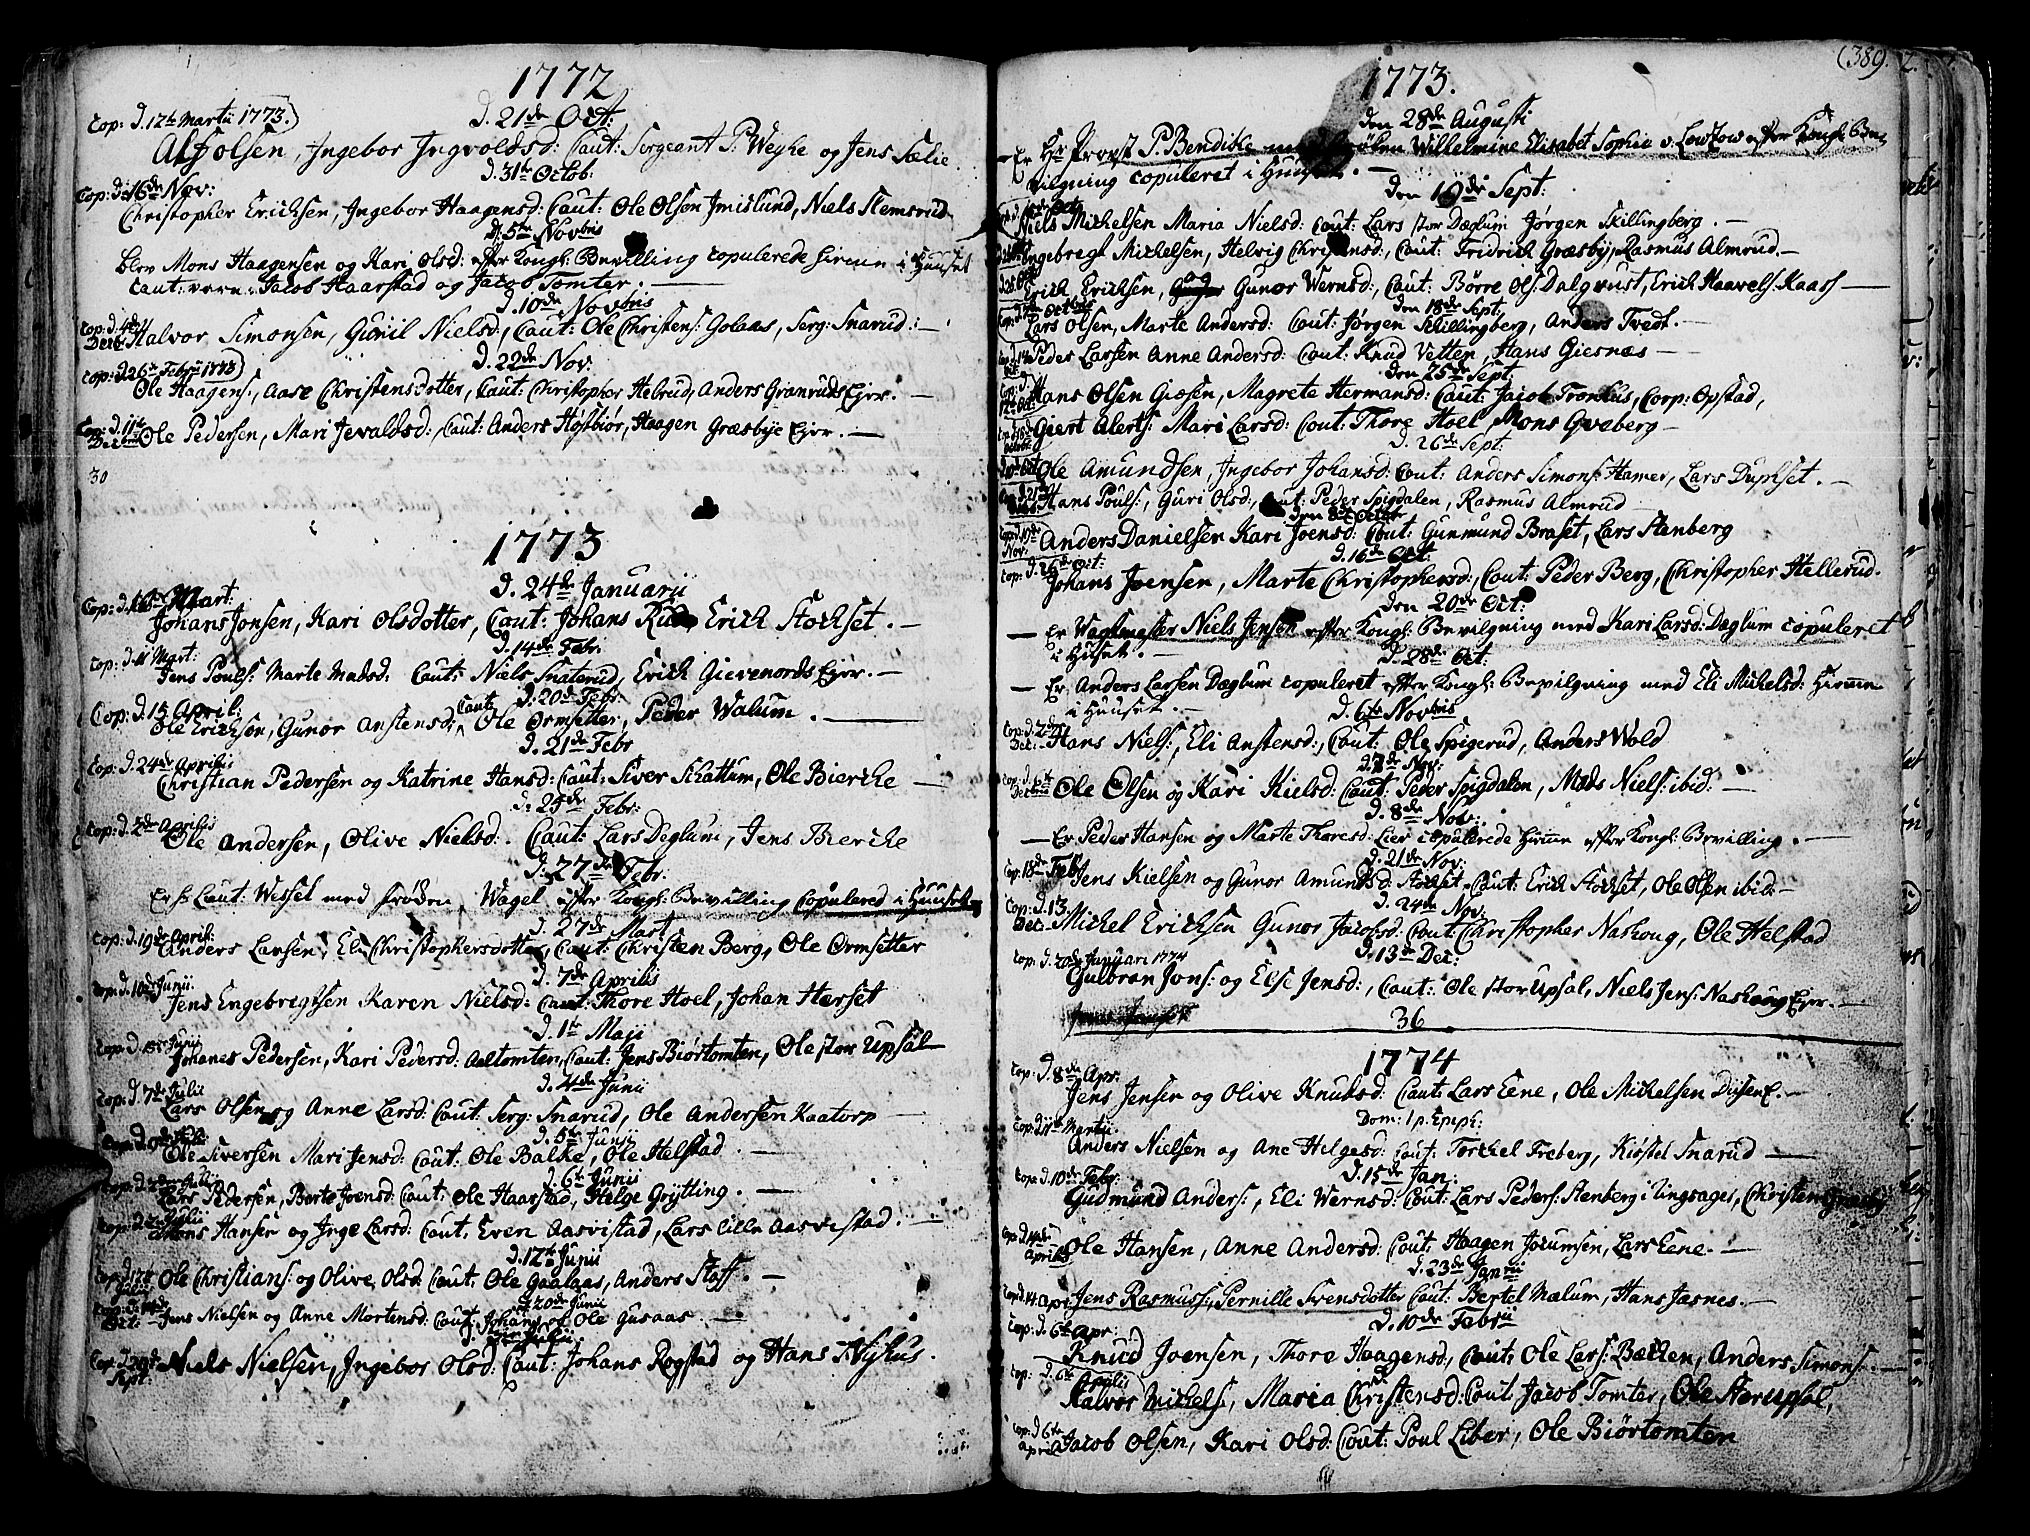 1772
d. 21de Oct:
Cop: d. 12te Martii 1773.)
Olsen, Ingebor Ingvoldsd: Caut: Sergeant P. Weyhe og Jens Sælie
d. 31te Octob:
Cop: d. 16de Nov:
Christopher Erichsen, Ingebor Haagensd: Caut: Ole Olsen Imislund, Niels Stemsrud
d. 5te Novbris
blev Mons Haagensen og Kari Olsd: efter Kongl: Bevilling copulerede hiemme i Huuset
Caut: vare Jacob Haarstad og Jacob Tomter.
d. 10de Novbris
Cop: d. 4de Decbr Halvor Simonsen, Gunil Nielsd: Caut: Ole Christens: Golaas, Serg: Snarud.
d. 22de Nov:
Cop: d. 26te Febrii 1773)
Ole Haagens:, Aase Christensdotter, Caut: Christopher Helsrud, Anders Granruds Ejer.
Cop: d. 11te Decbris Ole Pedersen, Mari Jevaldsd: Caut: Anders Høstbiør, Haagen Græsbye Ejer.
30
1773
d. 24de Januarii
Cop: d. Mart:
Johans Jonsen, Kari Olsdotter, Caut: Johans Erich Stochset.
d. 14de Febr.
Cop: d. 11 Mart:
Jens Pouls: Marte Madsd: Caut: Niels Snaterud, Erich Gievenords Ejer.
d. 20de Febr.
Cop: d. 15 April:
Ole Erichsen, Gunor Anstensd: Caut: Ole Ormsetter, Peder Walum.
d. 21de Febr
Cop: d. 24de Aprilis
Christian Pedersen og Katrine Hansd: Caut: Siver Schattum, Ole Bierche
d. 25de Febr:
Cop: d. 2de Aprilis
Ole Andersen, Olive Nielsd: Caut: Lars Deglum, Jens Bierche
d. 27de Febr:
Er Hr Lieut: Wessel med frøken Wagel efter Kongl: Bevilling Copulered i Huuset
d. 27de Mart
Cop: d. 19de April:
Anders Larsen, Eli Christophersdotter, Caut: Christen Berg, Ole Ormsetter
d. 7de Aprilis
Cop: d. 10de Junii
Jens Engebregtsen Karen Nielsd: Caut: Thore Hoel, Johan Hærset
d. 1te Maji
Cop: d. Junii
Johanes Pedersen, Kari Pedersd: Aaltomten, Caut: Jens Biørtomten, Ole stor Upsal
d. 4de Junii
Cop: d. 7de Julii
Lars Olsen og Anne Larsd: Caut: Serg: Snarud, Ole Andersen Kaatorp
d. 5te Junii
Ole Siversen Mari Jensd: Caut: Ole Balke, Ole Helstad.
d. 6te Junii
Lars Pedersen, Berte Joensd: Caut: Ole Haarstad, Helge Grytting.
Mons Hansen og Inge Larsd: Caut: Even Aasvistad, Lars lille Aasvistad.
d. 12te Junii
Ole Christians: og Olive Olsd: Caut: Ole Gaalaas, Anders Staff.
d. 20de Junii
Jens Nielsen og Anne Mortensd: Caut: Johans og Ole Gusaas.
Cop: d. 29de Sept. Niels Nielsen, Ingebor Olsd: Caut: Johans Rogstad og Hans Nyhus.
(389.
1773.
den 28de Augusti
Er Hr Provst P. Bendike med frøken Wilhelmine Elisabet Sophia v. Lowzow efter Kongl: Be-
vilgning copuleret i Huuset.
den 10de Sept:
Niels Michelsen Maria Nielsd: Caut: Lars stor Dæglum Jørgen Skillingberg.
Ingebregt Michelsen, Helvig Christensd: Caut: Fridrich Græsby, Rasmus Almrud.
Erich Erichsen, Gunor Wernsd:, Caut: Børre Ols: Dalqvust, Erich Haavels: Kaass
den 18de Sept.
Lars Olsen, Marte Andersd: Caut: Jørgen Schillingberg, Anders Tvedt.
Peder Larsen Anne Andersd: Caut: Knud Vetten, Hans Giesnæs
den 25de Sept.
Hans Olsen Giøsen, Magrete Hermansd: Caut: Jacob Tronhus, Corp: Opstad,
Giert Alerts: Mari Larsd: Caut: Thore Hoel Mons Gvæberg
d. 26de Sept.
Ole Amundsen, Ingebor Johansd: Caut: Anders Simons: Hamer, Lars Duplset.
Hans Pouls:, Guri Olsd:, Caut: Peder Spigdalen, Rasmus Almrud
den 8de Octobr
Anders Danielsen Kari Joensd: Caut: Gunmund Braset, Lars Stenberg
d. 16de Oct.
Cop: d. 26te Oct:
Johans Joensen, Marte Christophersd:, Caut: Peder Berg, Christopher Hellerud.
den 20de Oct:
Er Wagtmester Niels Jensen efter Kongl: Bevilgning med Kari Larsd: Dæglum copuleret
i Huuset.
d. 28de Oct:
Er Anders Larsen Dæglum copuleret efter Kongl: Bevilgning med Eli Michelsd: hiemme
i Huuset.
d. 6te Novbris
Cop: d. 2de Dec: Hans Niels:, Eli Anstensd:, Caut: Ole Spigerud, Anders Wold
d. 7de Nov:
Ole Olsen og Kari Kielsd: Caut: Peder Spigdalen, Mads Niels: ibid:
d. 8de Nov:
Er Peder Hansen og Marte Thoresd: Lier copulerede hiemme efter Kongl: Bevilling.
d. 21de Nov:
Cop: 18de Febr
Jens Kielsen og Gunor Amundsd: Stochset Caut: Erich Stochset, Ole Olsen ibid:
d. 24de Nov:
Cop: d. 13 Dec: Michel Erichsen Gunor Jacobsd: Caut: Christopher Nashoug, Ole Helstad
d. 13te Dec:
Cop: d. 20de Januari 1774
Gulbran Jons: og Else Jensd:, Caut: Ole stor Upsal, Niels Jens: Nashoug Ejer.
36
1774
Cop: d. 8de Apr:
Jens Jensen og Olive Knudsd: Caut: Lars Eene, Ole Michelsen Disen E.
Dom: 1 p: Epiph:
Cop: d. 11te Martii
Anders Nielsen og Ane Helgesd: Caut: Torchel Freberg, Kiøstel Snarud
d. 15de Jan:
Cop: d. 10de Febr:
Gudmund Anders:, Eli Wernsd: Caut: Lars Peders: Stenberg i Ringsager, Christen
Cop: d. 4de Aprilis Ole Hansen, Anne Andersd: Caut: Haagen Jorumsen, Lars Eene.
d. 23de Janrii
Cop: d. 14 Apr: Jens Rasmuss:, Pernille Svensdotter Caut: Bertel Mælum, Hans Jasnes.
d. 10de Febrii
Cop: d. 6te Apr:
Knud Joensen, Thore Haagensd, Caut: Ole Lars: Bæchen, Anders Simons:
Cop: d. 6te Aprilis
Halvor Michels:, Maria Christensd: Caut: Jacob Tomter, Ole Storupsal,
Cop: d. 6te April: Jacob Olsen, Kari Olsd: Caut: Poul Liber, Ole Biørtomten